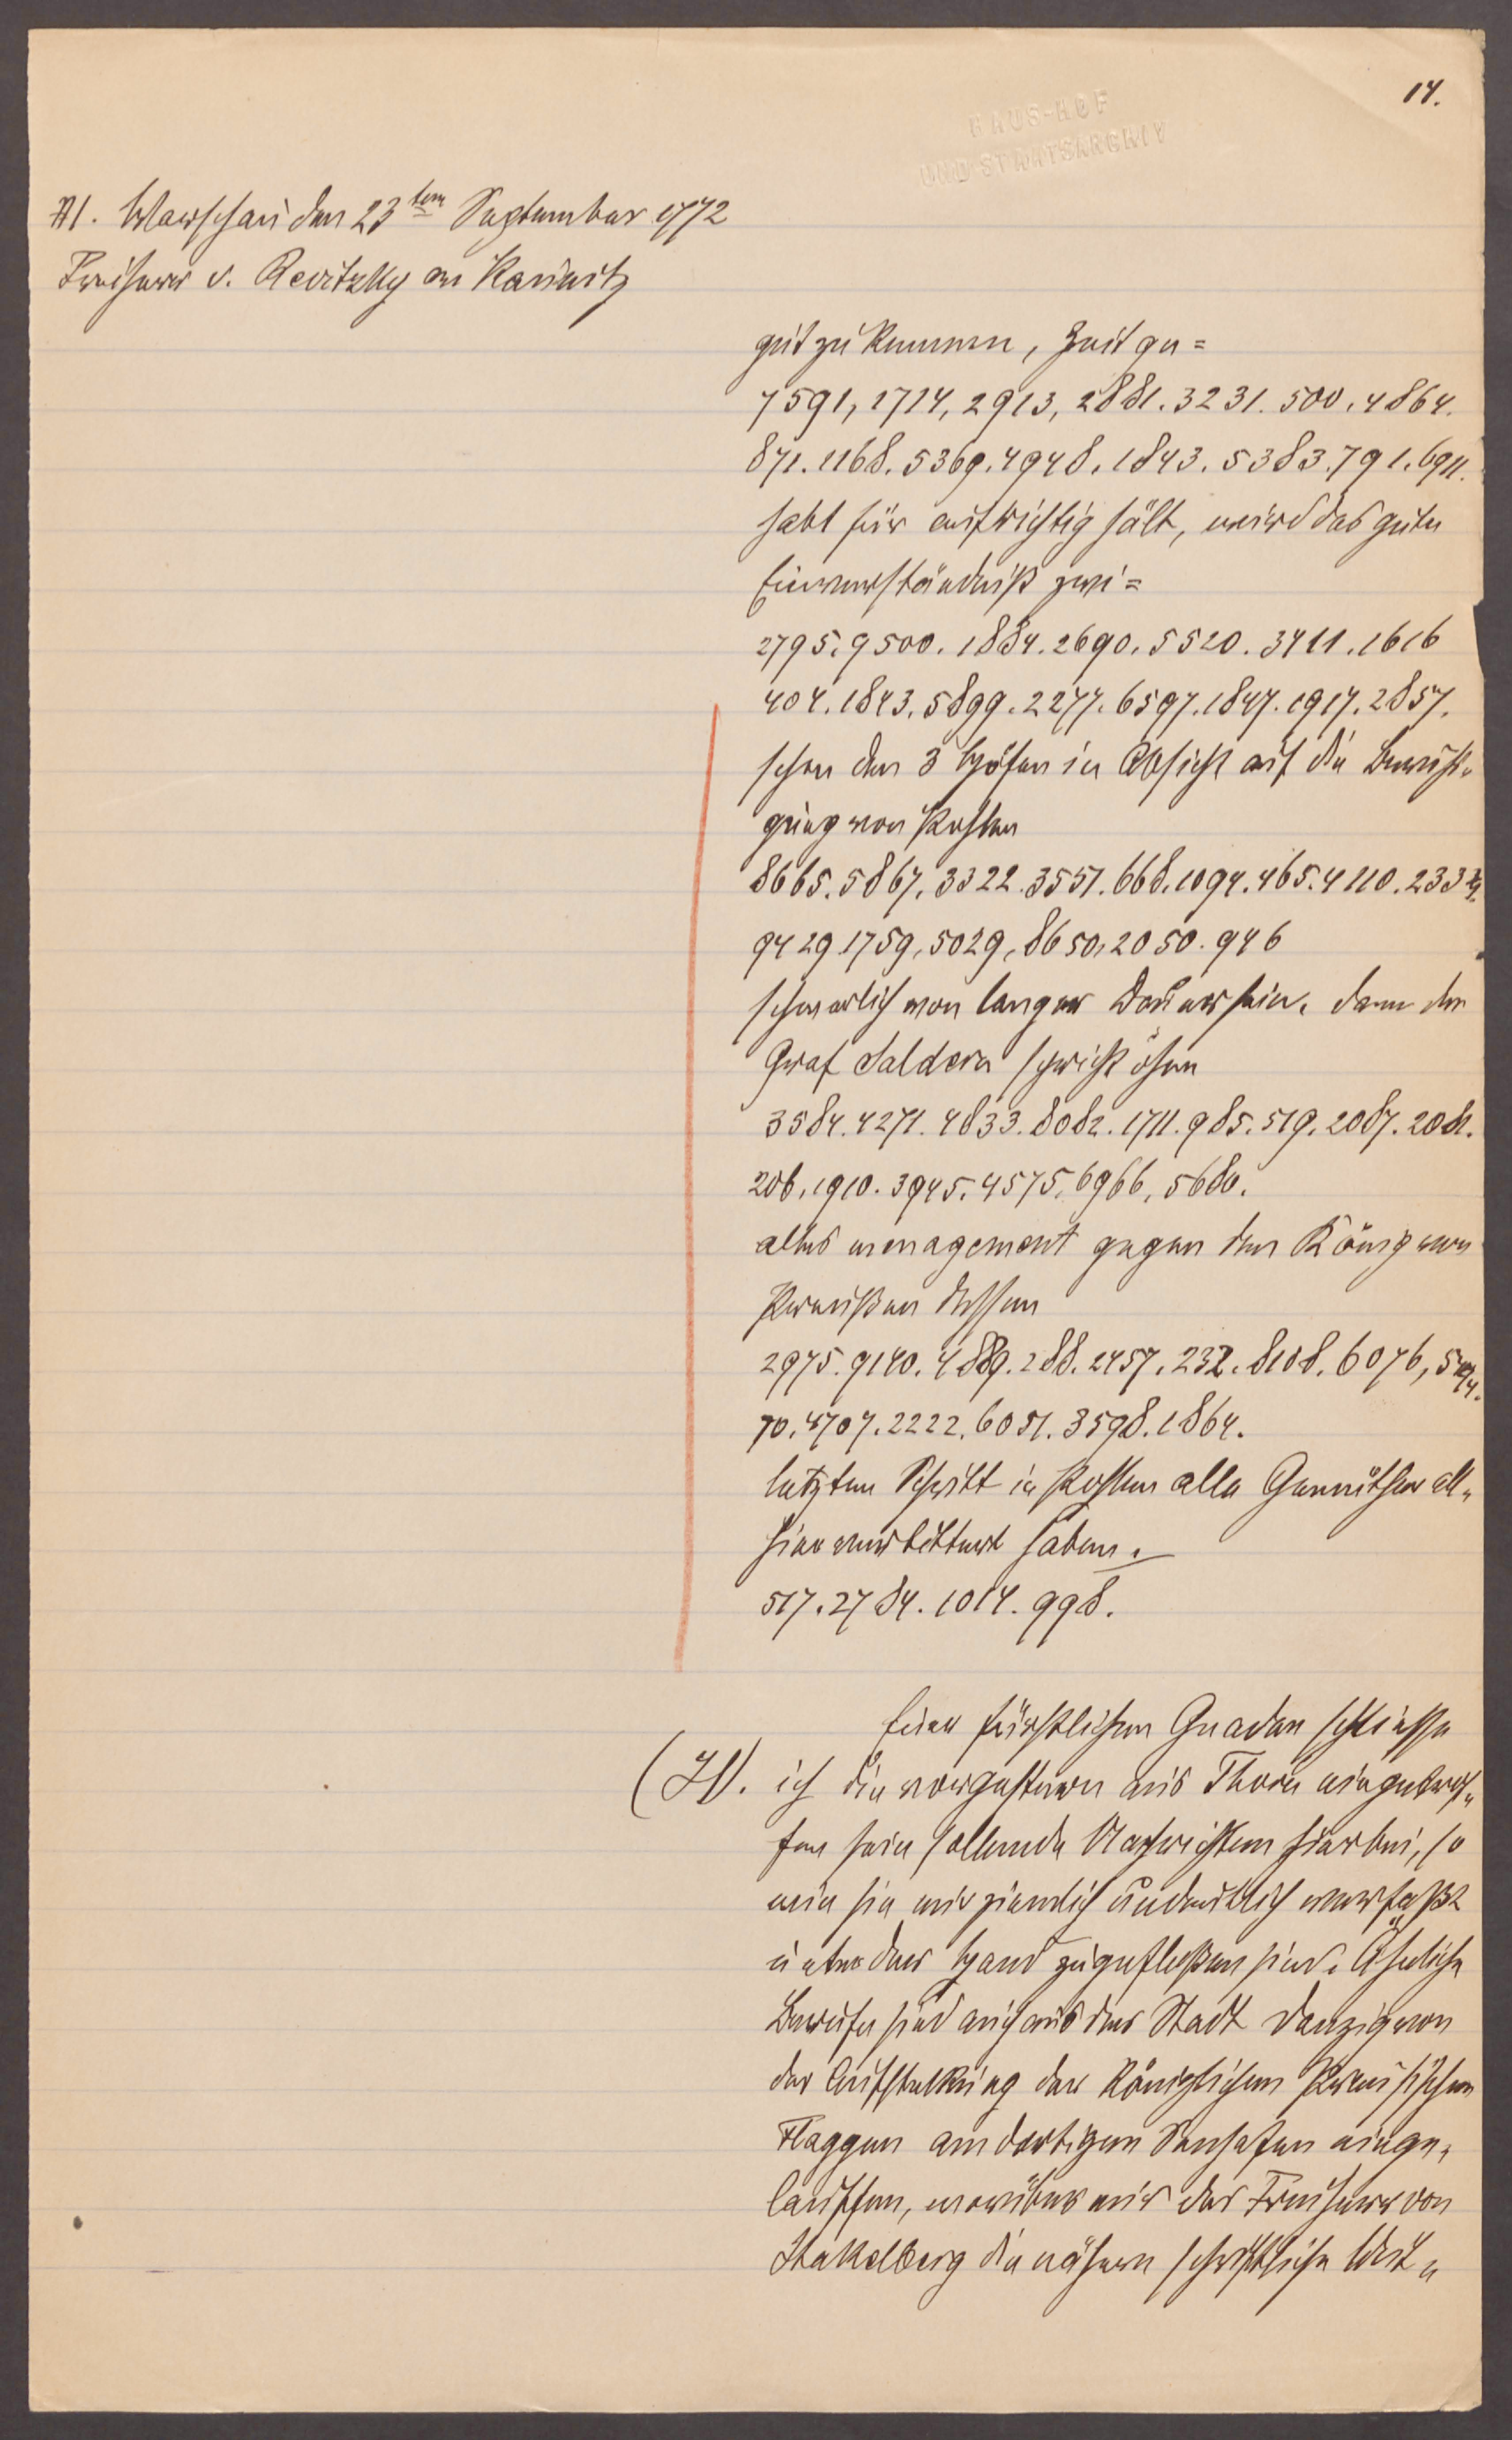 14.
HAUS-HOF
UND STAATSARCHIV
A1. Warschau den 23ten September 1772
Freiherr v. Revitzky an Kaunitz
gut zu kennen, Zeit ge=
7591, 1714, 2913, 2881. 3231. 500. 4864.
871. 1168. 5369. 4948. 1843. 5383. 791. 6911.
habt für aufrichtig hält, wird das gute
Einverständniß zwi=
2795. 9500. 1884. 2690. 5520. 3411. 1616
404. 1843. 5899. 2277. 6597. 1847. 1917. 2857.
schen den 3 Höfen in Absicht auf die
von Pohlen
8665. 5867. 3322. 3551. 668. 1094. 465. 4110. 2333.
9429. 1759. 5029. 8650. 2050. 946
schwerlich von langer Dauer sein. dann der
Graf Saldern spricht ohne
3584. 4271. 4833. 8082. 1711. 985. 519. 2087. 2081.
206. 1910. 3945. 4575. 6966. 5680.
alles menagement gegen den König von
Preußen dessen
2975. 9140. 4889. 288. 2457. 232. 8108. 6076,
70. 4707. 2222. 6051. 3598. 1864.
letztere Schritt in Pohlen alle Gemüther all„
hier verbittert haben.
517. 2784. 1014. 998.
Euer fürstlichen Gnaden schliesse
(H). ich die vorgestern aus Thorn eingetrof„
fen sein sollende Nachrichten hierbei, so
wie sie mir ziemlich undeutlich verfaßt
unter der Hand zugefloßen sind. Ähnliche
Berufe sind auch aus der Stadt Danzig von
der Aufsteckung der Königlichen Preußischen
Flaggen am dortigen Seehafen einge„
lauffen, worüber mir der Freiherr von
Stakelberg die nähere schriftliche Ver„